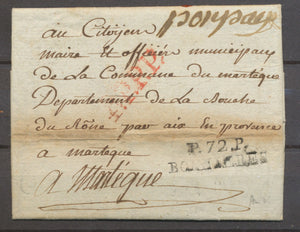 port payé
au Citoyen
maire et officier municipaux
de La Commune du martegue
Departement de La Bouche
du Rône par aix En provence
a martegue
a Martégue
P.72.P.